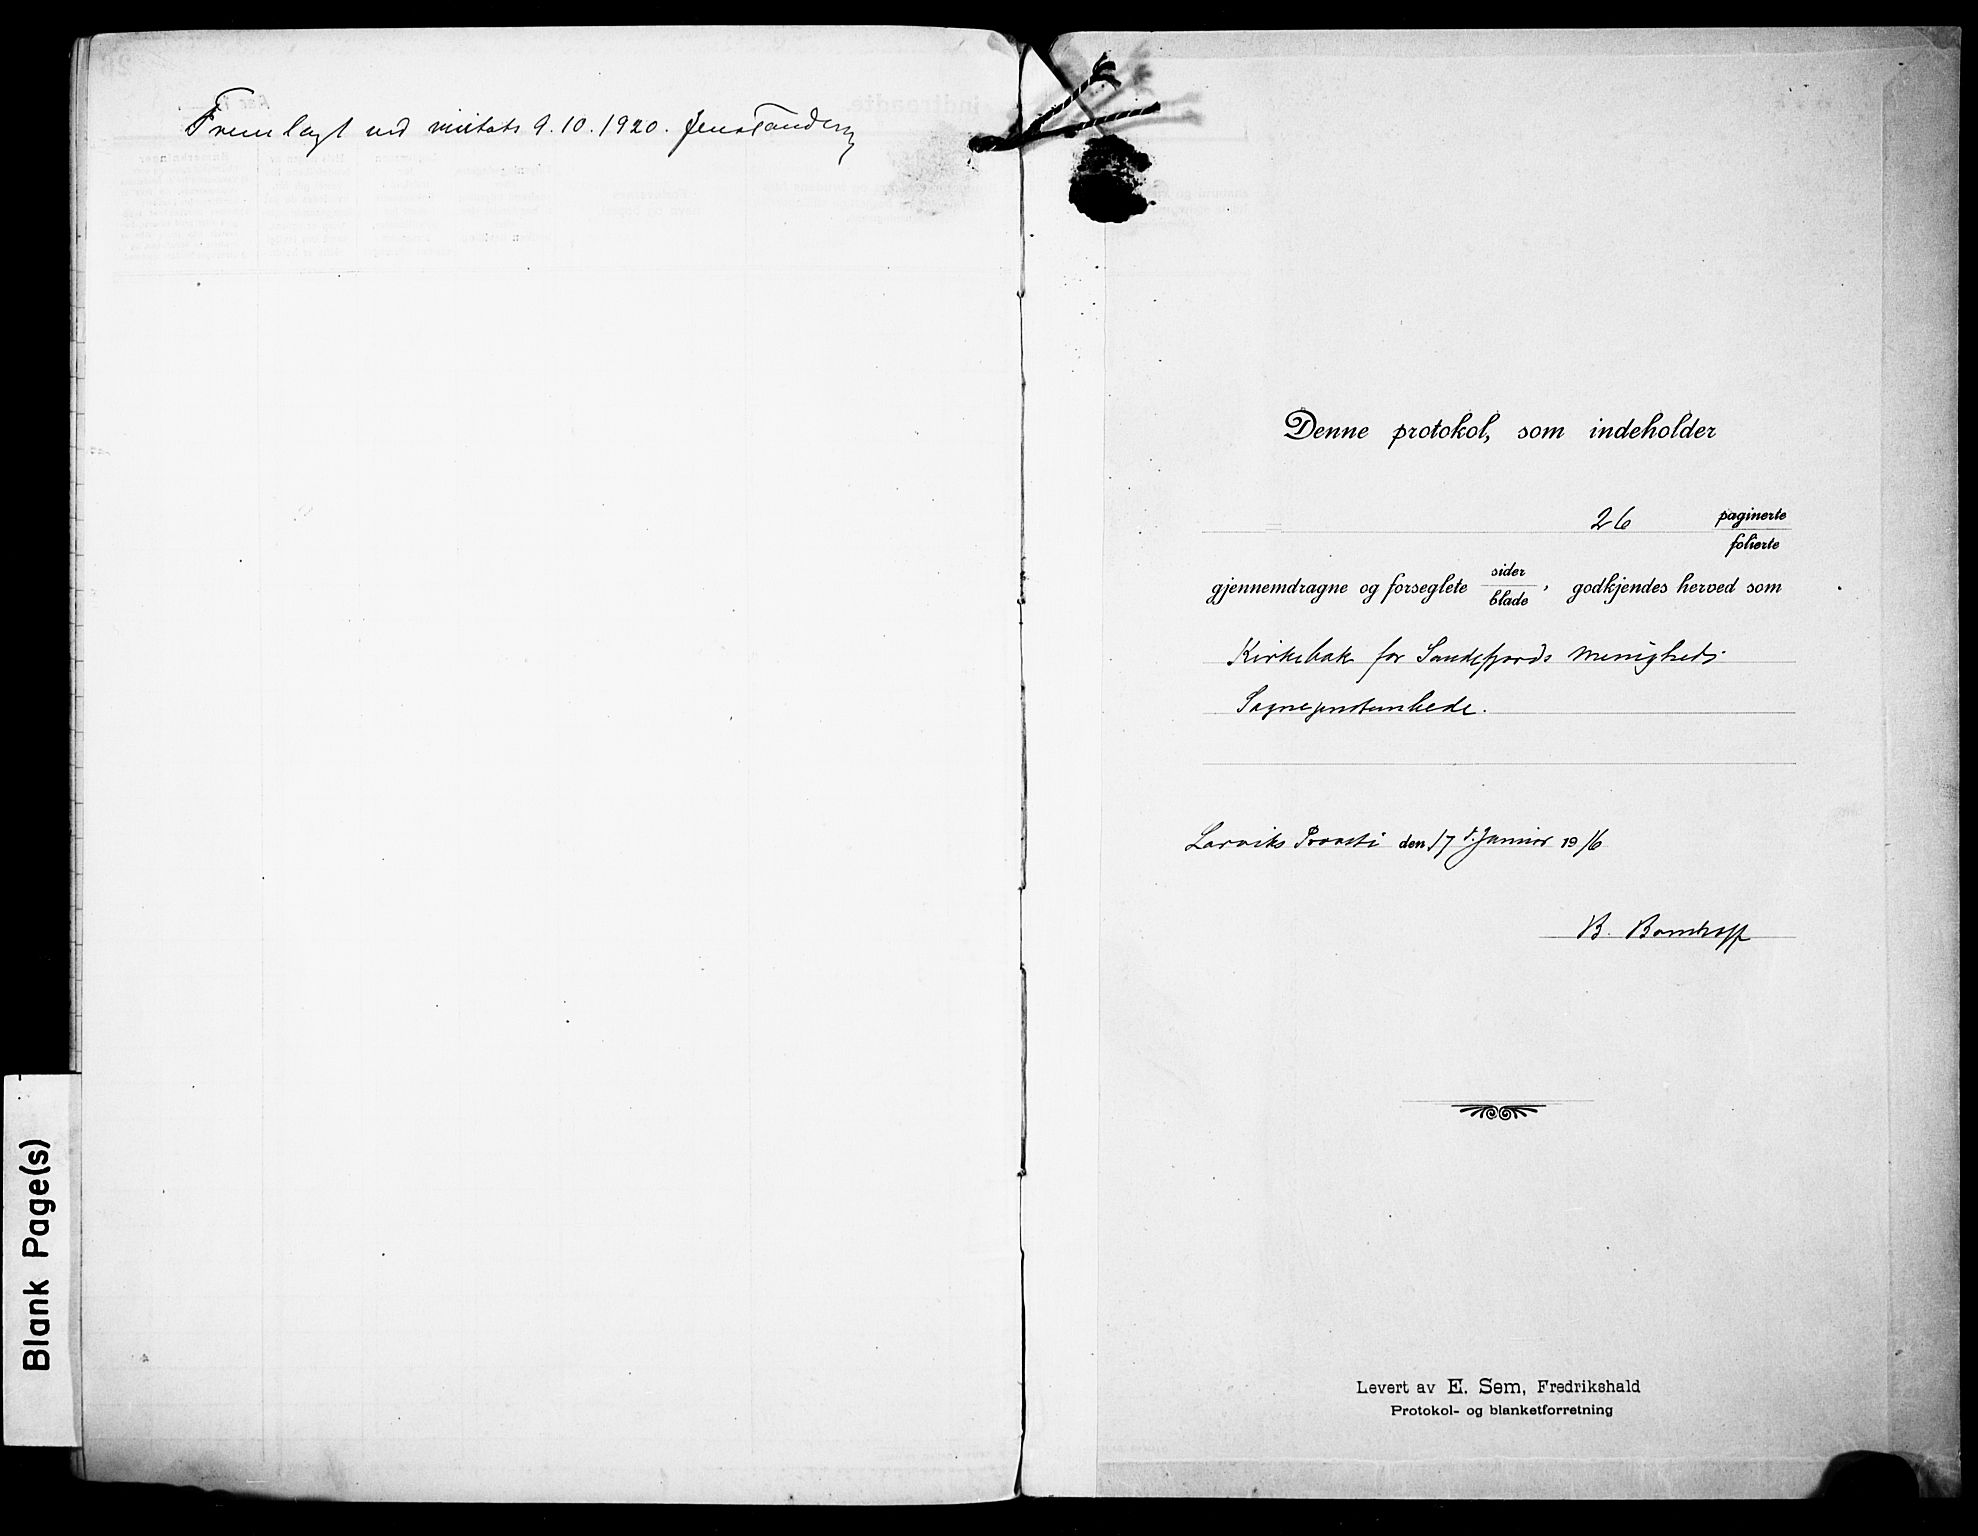 Fremlagt ved visitats 9.10.1920. Jens Tandberg
Denne protokol, som indeholder
26 paginerte
folierte
gjennemdragne og forseglete sider
blade, godkjendes herved som
Kirkebok for Sandefjords Menigheds
Sogneprestembede.
Larviks Provsti den 17 d. Januar 1916
B.
Levert av E. Sem, Fredrikshald
Protokol- og blanketforretning
Blank Page(s)